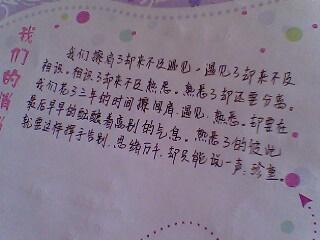 我们的消
我们擦肩了却来不及遇见。遇见了却来不及
相识。相识了却来不及熟悉。熟悉了却还要分离。
我们花了三年的时间擦间肩、遇见、熟悉。却要在
最后早早的敲散着离别的气息。熟悉了的彼此
就要这样挥手告别。思绪万千，却只能说一声：珍重。